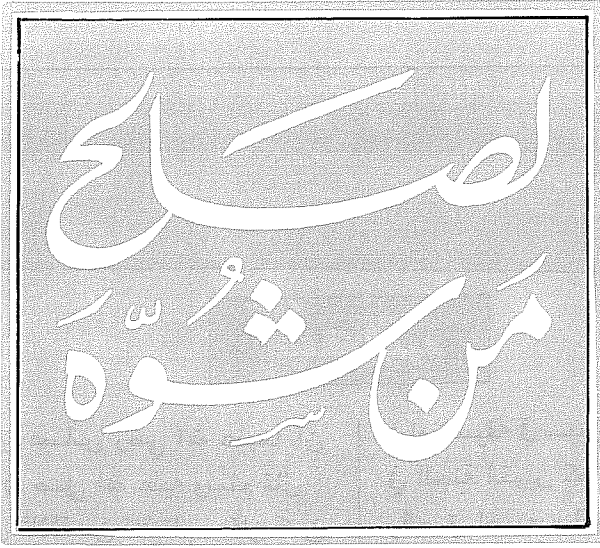 لصَالح
مَن شُوّهَ